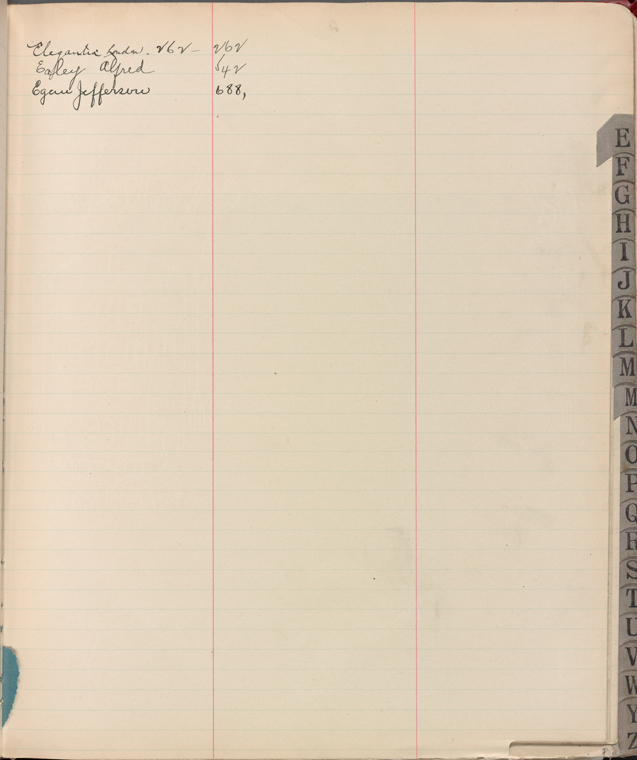 Elegantia London. 262 – 262
Earley Alfred 542
Egan Jefferson 688,
E
F
G
H
I
J
K
L
M
M
N
O
P
Q
R
S
T
U
V
W
Y
Z